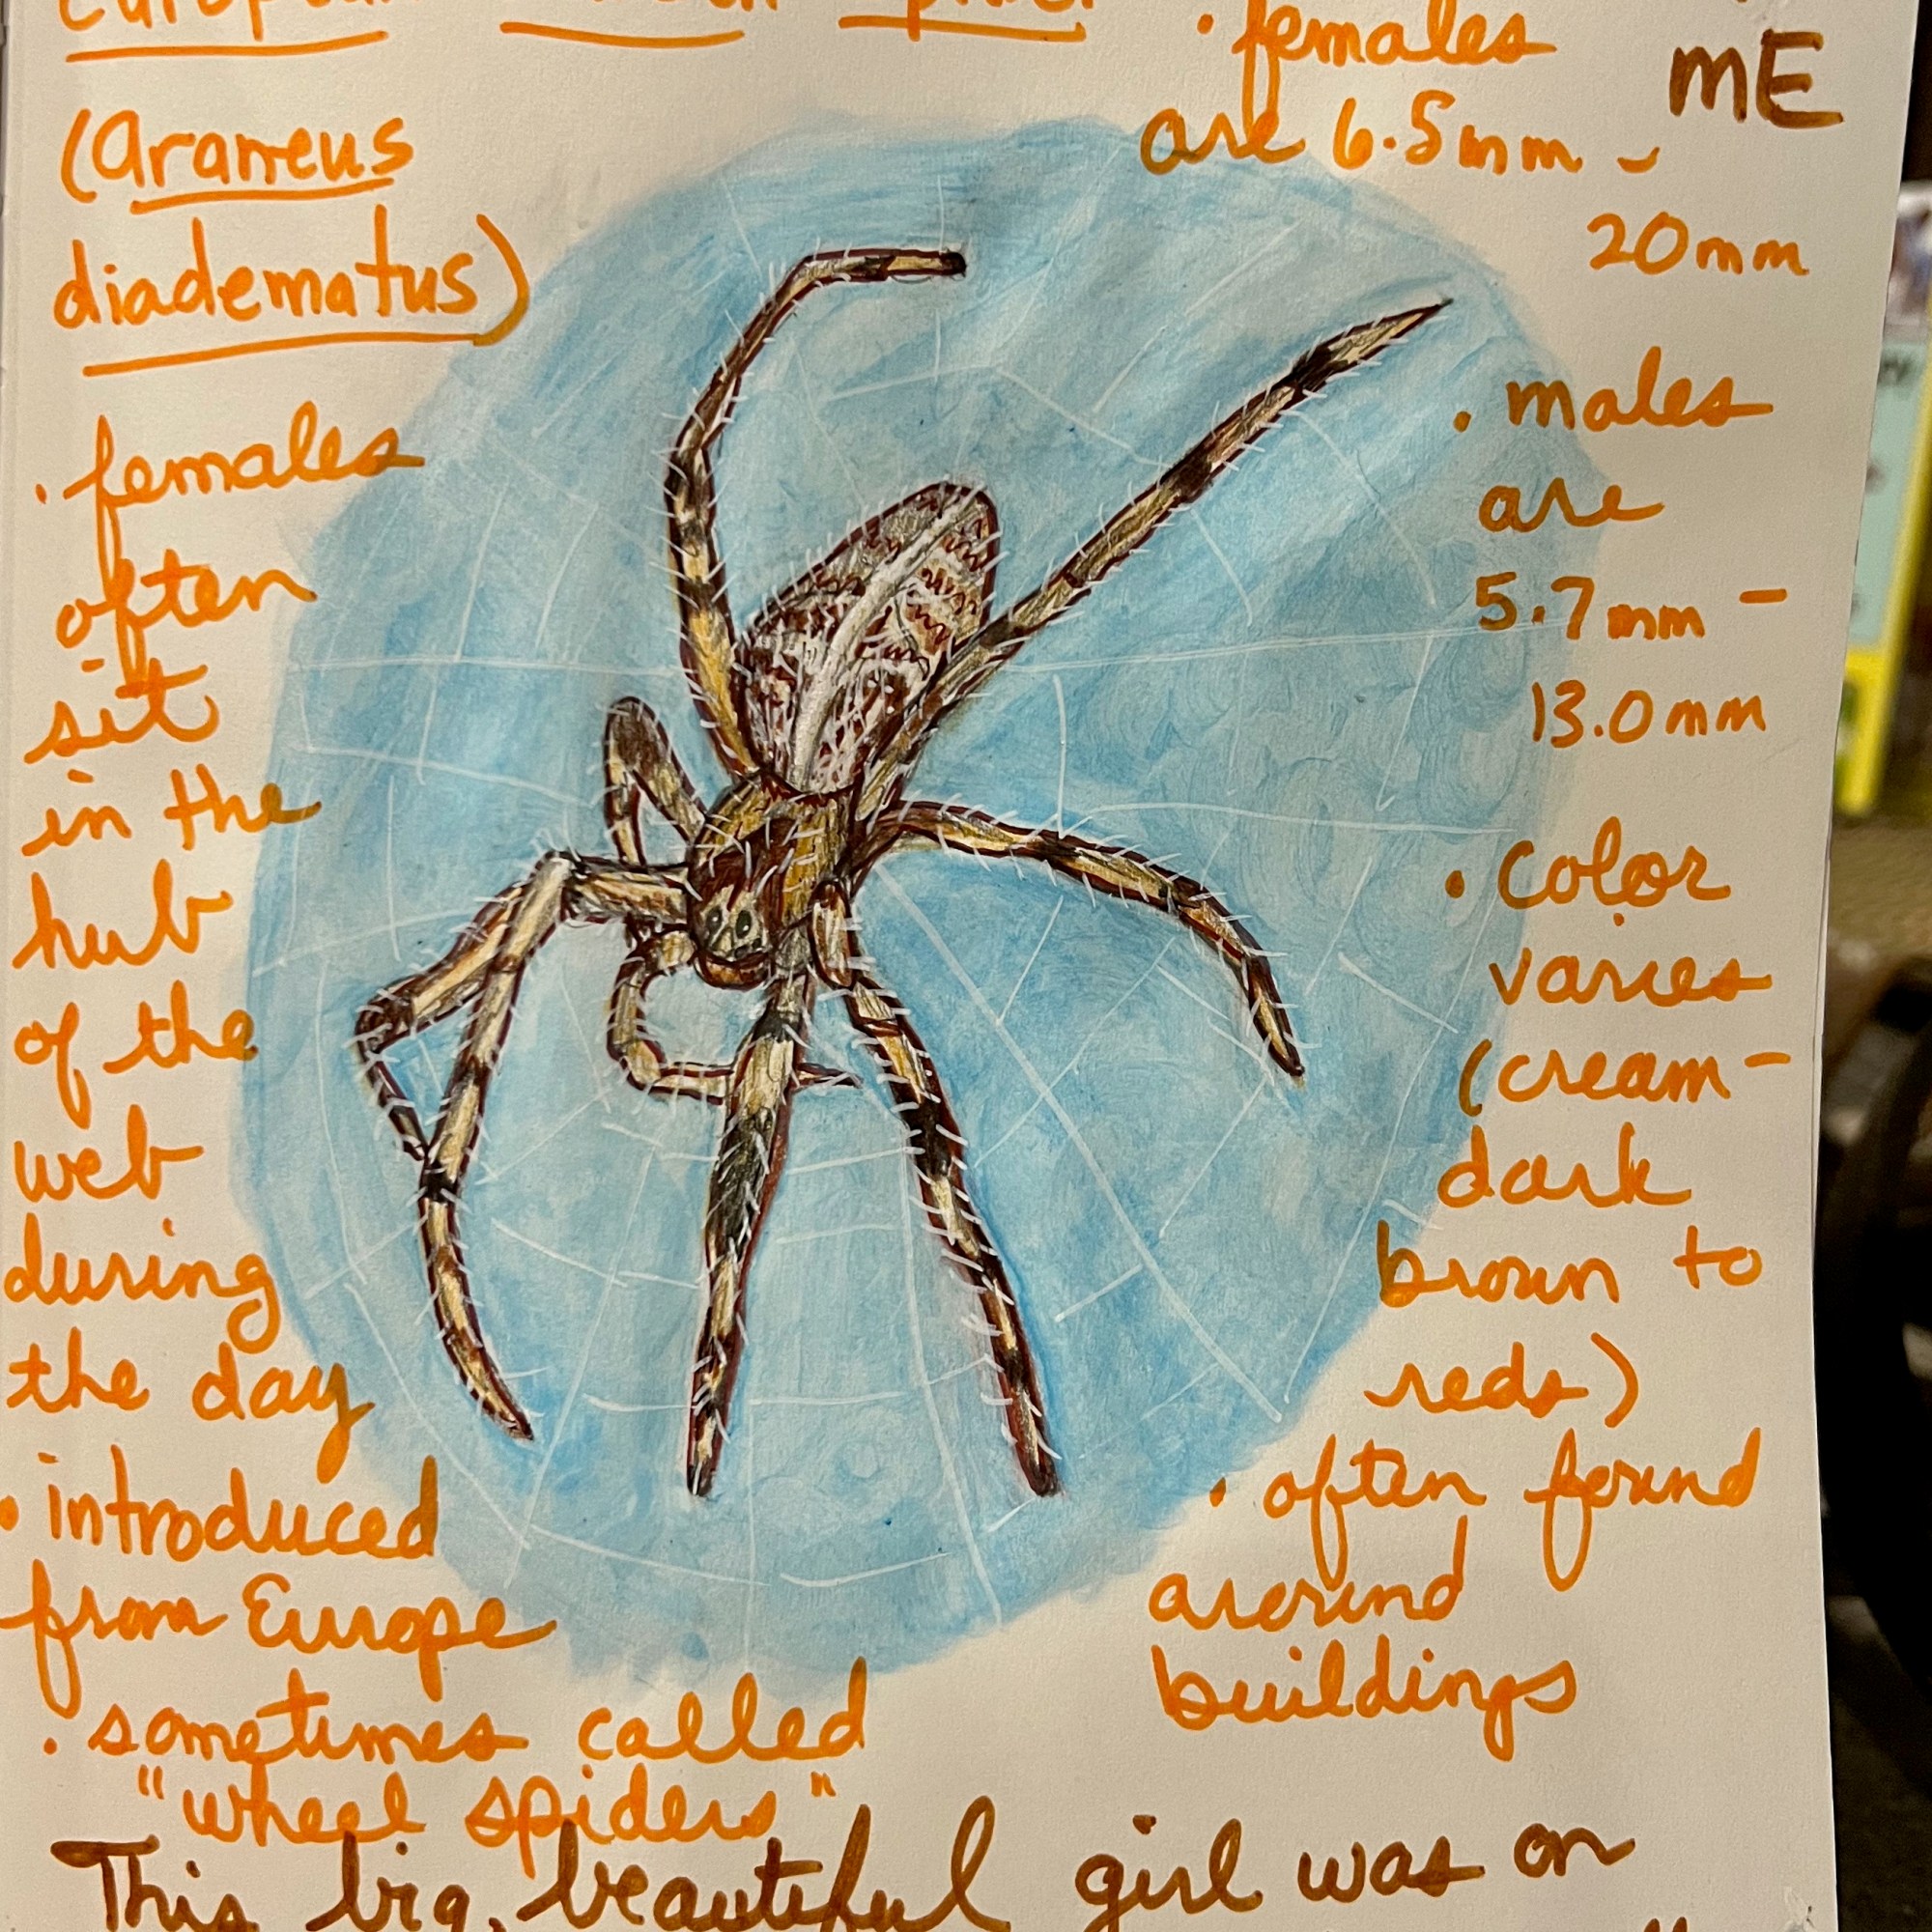 European Garden Spider
(Araneus
diadematus)
· females
often
sit
in the
hub
of the
web
during
the day
· introduced
from Europe
· sometimes called
"wheel spiders"
· females
are 6.5mm -
20mm
ME
· males
are
5.7mm -
13.0mm
· Color
varies
(cream-
dark
brown to
reds)
· often found
around
buildings
This big, beautiful girl was on